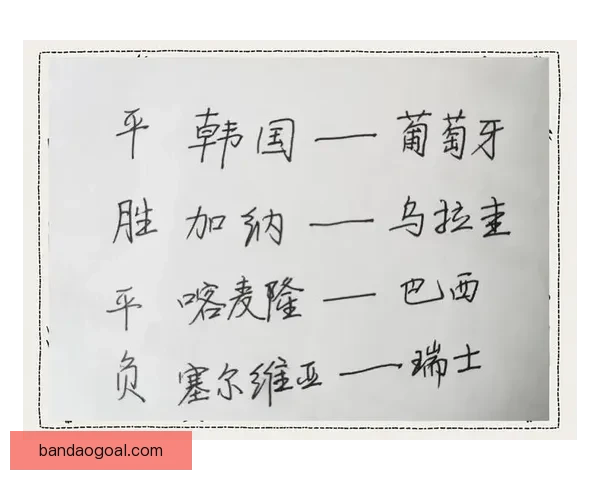 平 韩国 — 葡萄牙
胜 加纳 — 乌拉圭
平 喀麦隆 — 巴西
负 塞尔维亚 — 瑞士
bandaogoal.com